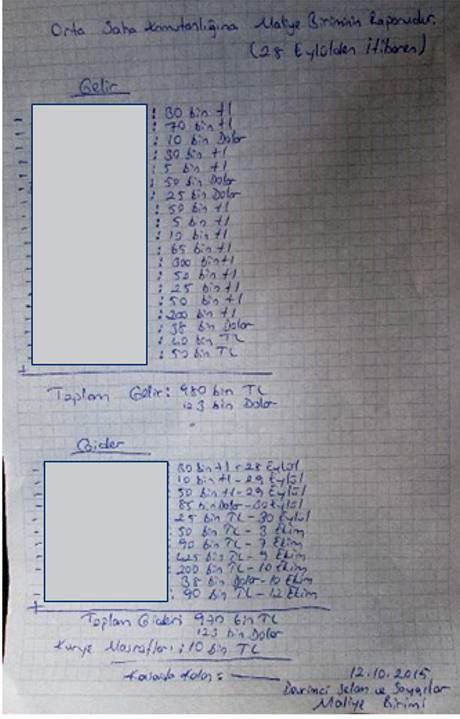 Orta Saha Komutanlığına Maliye Biriminin Raporudur.
(28 Eylülden itibaren)
Gelir
: 30 bin tl
: 70 bin tl
: 10 bin Dolar
: 30 bin tl
: 5 bin tl
: 50 bin Dolar
: 25 bin Dolar
: 50 bin tl
: 5 bin tl
: 10 bin tl
: 65 bin tl
: 300 bin tl
: 50 bin tl
: 25 bin tl
: 50 bin tl
: 200 bin tl
: 38 bin Dolar
: 40 bin TL
: 50 bin TL
Toplam Gelir: 980 bin TL
123 bin Dolar
Gider
30 bin tl - 28 Eylül
10 bin tl - 29 Eylül
50 bin tl - 29 Eylül
85 bin Dolar - Eylül
25 bin TL - 30 Eylül
50 bin TL - 3 Ekim
90 bin TL - 7 Ekim
425 bin TL - 9 Ekim
200 bin TL - 10 Ekim
38 bin Dolar - 10 Ekim
: 90 bin TL - 12 Ekim
Toplam Gideri 970 bin TL
123 bin Dolar
Kurye Masrafları : 10 bin TL
Kasada Kalan :
12.10.2015
Devrimci Selam ve Saygılar
Maliye Birimi